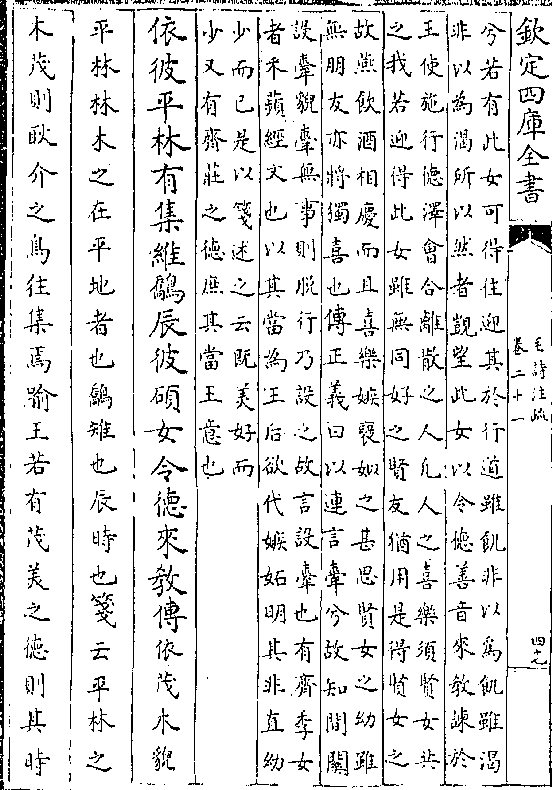 欽定四庫全書
毛詩注疏
卷二十一
四十九
兮若有此女可得往迎其於行道雖飢非以為飢雖渴
非以為渴所以然者覯望此女以令德善音來教諫於
王使施行德澤會合離散之人凡人之喜樂須賢女共
之我若迎得此女雖無同好之賢友猶用是得賢女之
故燕飲酒相慶而且喜樂嫉褒姒之甚思賢女之幼雖
無朋友亦將獨喜也傳正義曰以連言舝兮故知間關
設舝貌舝無事則脫行乃設之故言設舝也有齊季女
者采蘋經文也以其當為王后欲代嫉妬明其非直幼
少而已是以箋述之云既美好而
少又有齊莊之德庶其當王意也
依彼平林有集維鷮辰彼碩女令德來教傳依茂木貌
平林林木之在平地者也鷮雉也辰時也箋云平林之
木茂則耿介之鳥往集焉喻王若有茂美之德則其時